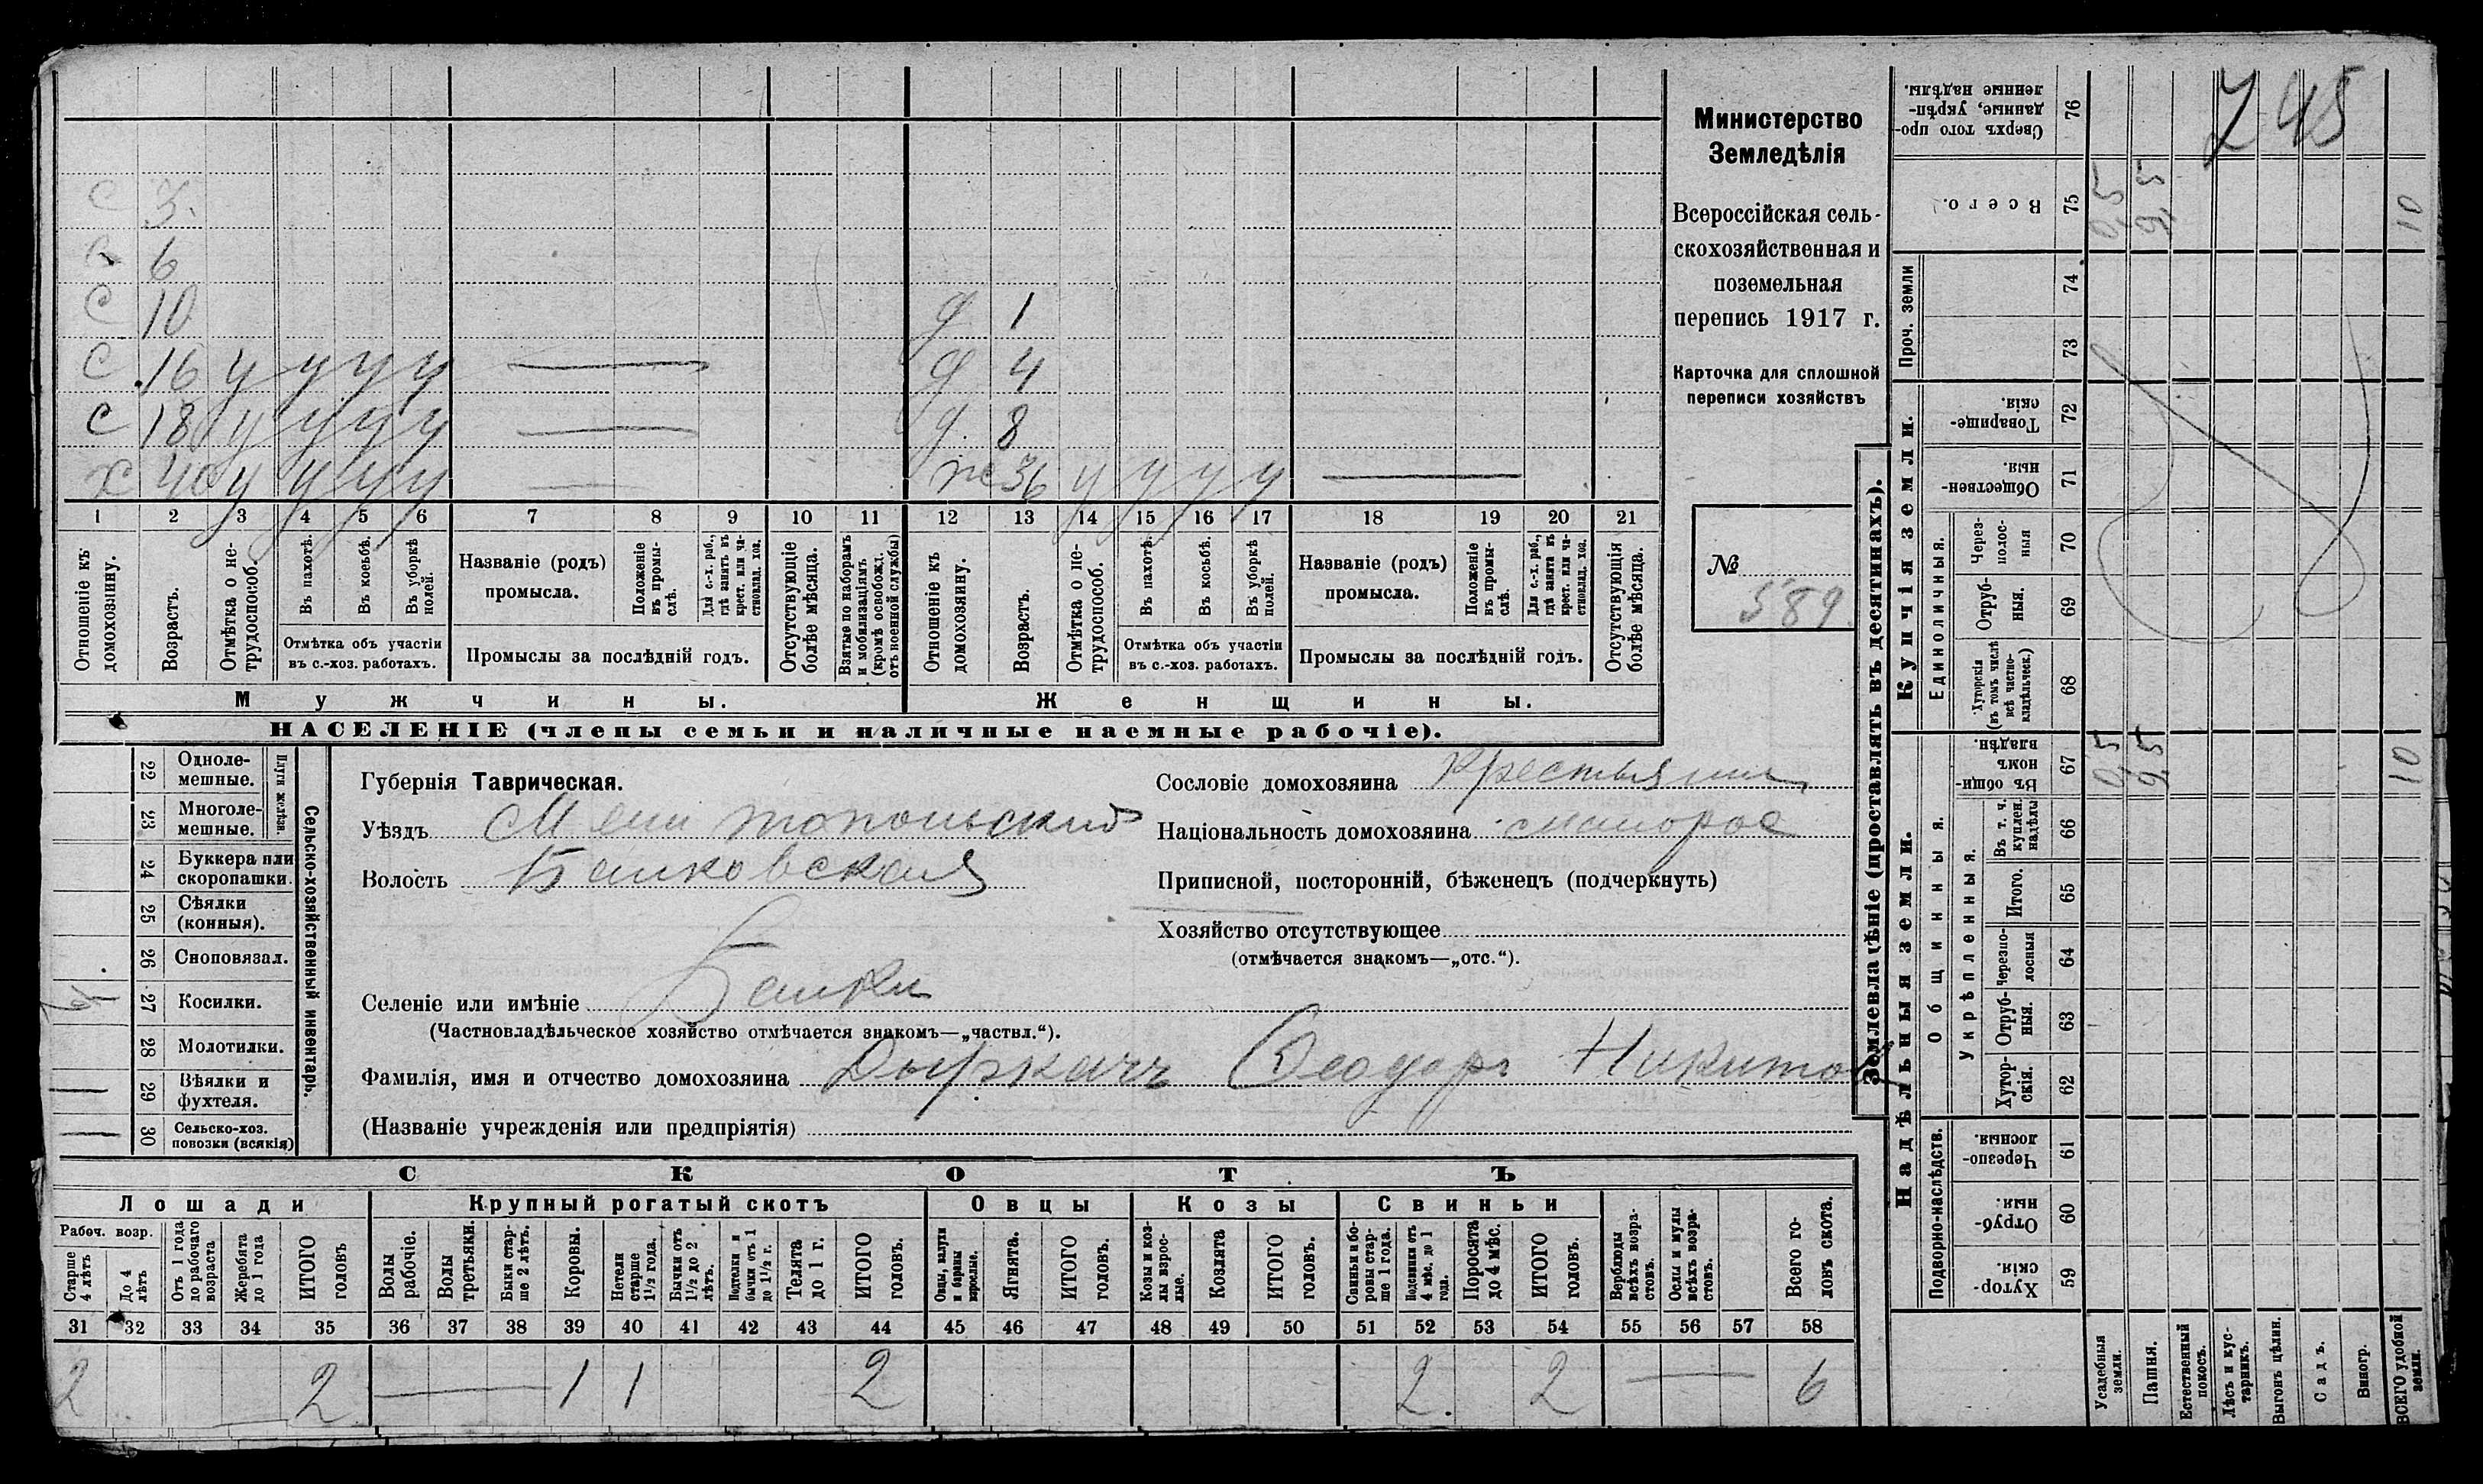 Министерство
Земледѣлія
Всероссійская сель-
скохозяйственная и
поземельная
перепись 1917 г.
Карточка для сплошной
переписи хозяйствъ
№ 589
745
с 3
с 6
с 10 д 1
с 16 у у у у — д 4
с 18 у у у у — д 8
х 40 у у у у — же 36 у у у у —
1 2 3 4 5 6 7 8 9 10 11 12 13 14 15 16 17 18 19 20 21
Отношеніе къ домохозяину.
Возрастъ.
Отмѣтка о не-трудоспособ.
Въ пахотѣ.
Въ косьбѣ.
Въ уборкѣ полей.
Отмѣтка объ участіи
въ с.-хоз. работахъ.
Названіе (родъ)
промысла.
Положеніе въ промы-слѣ.
Для с.-х. раб., гдѣ занятъ въ крест. или ча-стновлад. хоз.
Промыслы за послѣдній годъ.
Отсутствующіе болѣе мѣсяца.
Взятые по наборамъ и мобилизаціямъ (кромѣ освобожд. отъ военной службы)
Отношеніе къ домохозяину.
Возрастъ.
Отмѣтка о не-трудоспособ.
Въ пахотѣ.
Въ косьбѣ.
Въ уборкѣ полей.
Отмѣтка объ участіи
въ с.-хоз. работахъ.
Названіе (родъ)
промысла.
Положеніе въ промы-слѣ.
Для с.-х. раб., гдѣ занята въ крест. или ча-стновлад. хоз.
Промыслы за послѣдній годъ.
Отсутствующія болѣе мѣсяца.
Мужчины. Женщины.
НАСЕЛЕНІЕ (члены семьи и наличные наемные рабочіе).
Сельско-хозяйственный инвентарь.
Плуги желѣзн.
22 Одноле-мешные.
23 Многоле-мешные.
24 Буккера или скоропашки.
25 Сѣялки (конныя).
26 Сноповязал.
27 Косилки.
28 Молотилки.
29 Вѣялки и фухтеля.
30 Сельско-хоз. повозки (всякія)
Губернія Таврическая.
Уѣздъ Мелитопольский
Волость Балковская
Селеніе или имѣніе Балки
(Частновладѣльческое хозяйство отмѣчается знакомъ—„частвл.“).
Фамилія, имя и отчество домохозяина Дыркачъ Ѳеодоръ Никитов
(Названіе учрежденія или предпріятія)
Сословіе домохозяина крестьянин
Національность домохозяина малорос
Приписной, посторонній, бѣженецъ (подчеркнуть)
Хозяйство отсутствующее
(отмѣчается знакомъ—„отс.“).
СКОТЪ
Лошади Крупный рогатый скотъ Овцы Козы Свиньи
Рабоч. возр.
Старше 4 лѣтъ
До 4 лѣтъ
Отъ 1 года до рабочаго возраста
Жеребята до 1 года
ИТОГО головъ
Волы рабочіе.
Волы третьяки.
Быки стар-ше 2 лѣтъ.
Коровы.
Нетели старше 1½ года.
Бычки отъ 1½ до 2 лѣтъ.
Подтелки и бычки отъ 1 до 1½ г.
Телята до 1 г.
ИТОГО головъ.
Овцы, валухи и бараны взрослые.
Ягнята.
ИТОГО головъ.
Козы и коз-лы взрос-лые.
Козлята
ИТОГО головъ.
Свиньи и бо-ровы стар-ше 1 года.
Подсвинки отъ 4 мѣс. до 1 года.
Поросята до 4 мѣс.
ИТОГО головъ.
Верблюды всѣхъ возра-стовъ.
Ослы и мулы всѣхъ возра-стовъ.
Всего го-ловъ скота.
31 32 33 34 35 36 37 38 39 40 41 42 43 44 45 46 47 48 49 50 51 52 53 54 55 56 57 58
2 2 — 1 1 2 2 2 — 6
Землевладѣніе (проставлять въ десятинахъ).
Надѣльныя земли.
Подворно-наслѣдств.
59 Хутор-скія.
60 Отруб-ныя.
61 Черезпо-лосныя.
Общинныя.
Укрѣпленныя.
62 Хутор-скія.
63 Отруб-ныя.
64 Черезпо-лосныя
65 Итого.
66 Въ т. ч. куплен. надѣлы
67 Въ общин-номъ владѣн.
Купчія земли.
Единоличныя.
68 Хуторскія (въ томъ числѣ всѣ частно-владѣльческ.)
69 Отруб-ныя.
70 Через-полос-ныя
71 Обществен-ныя.
72 Товарище-скія.
Проч. земли
73
74
75 Всего.
76 Сверхъ того про-данные, укрѣп-ленные надѣлы.
Усадебныя земли. 0,5 0,5
Пашня. 9,5 9,5
Естественный покосъ.
Лѣсъ и кус-тарникъ.
Выгонъ цѣлин.
Садъ.
Виногр.
ВСЕГО удобной земли. 10 10